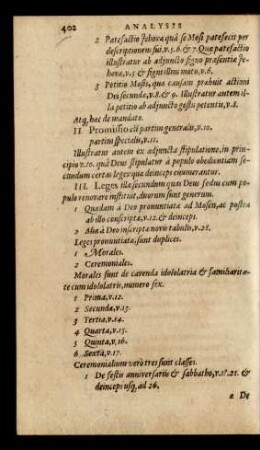 402 ANALYSIS
2 Patefactio Jehova quâ se Mosi patefecit per
descriptionem sui, v.5.6. & 7. Quæ patefactio
illustratur ab adjuncto signo præsentiæ Je-
hova, v.5 & signi illius motu, v.6.
3 Petitio Mosis, quæ causam præbuit actioni
Dei secunda, v.8. & 9. Illustratur autem il-
la petitio ab adjuncto gestu petentis, v.8.
Atq; hæc de mandato.
II Promissio est partim generalis, v.10.
partim specialis, v.11.
Illustratur autem ex adjuncta stipulatione, in prin-
cipio v.10. quâ Deus stipulatur à populo obedientiam se-
cundum certas leges quæ deinceps enumerantur.
III. Leges illæ secundum quas Deus fœdus cum po-
pulo renovare instituit, duorum sunt generum.
1 Quædam à Deo pronuntiatæ ad Mosen, ac postea
ab illo conscripta, v.12. & deinceps.
2 Aliæ à Deo inscriptæ novis tabulis, v.28.
Leges pronuntiatæ, sunt duplices.
1 Morales.
2 Ceremoniales.
Morales sunt de cavenda idololatria & familiarita-
te cum idololatris, numero sex.
1 Prima, v.12.
2 Secunda, v.13.
3 Tertia, v.14.
4 Quarta, v.15.
5 Quinta, v.16.
6 Sexta, v.17.
Ceremonialium verò tres sunt classes.
1 De festis anniversariis & sabbatho, v.18. 21. &
deinceps usq; ad 26.
2 De